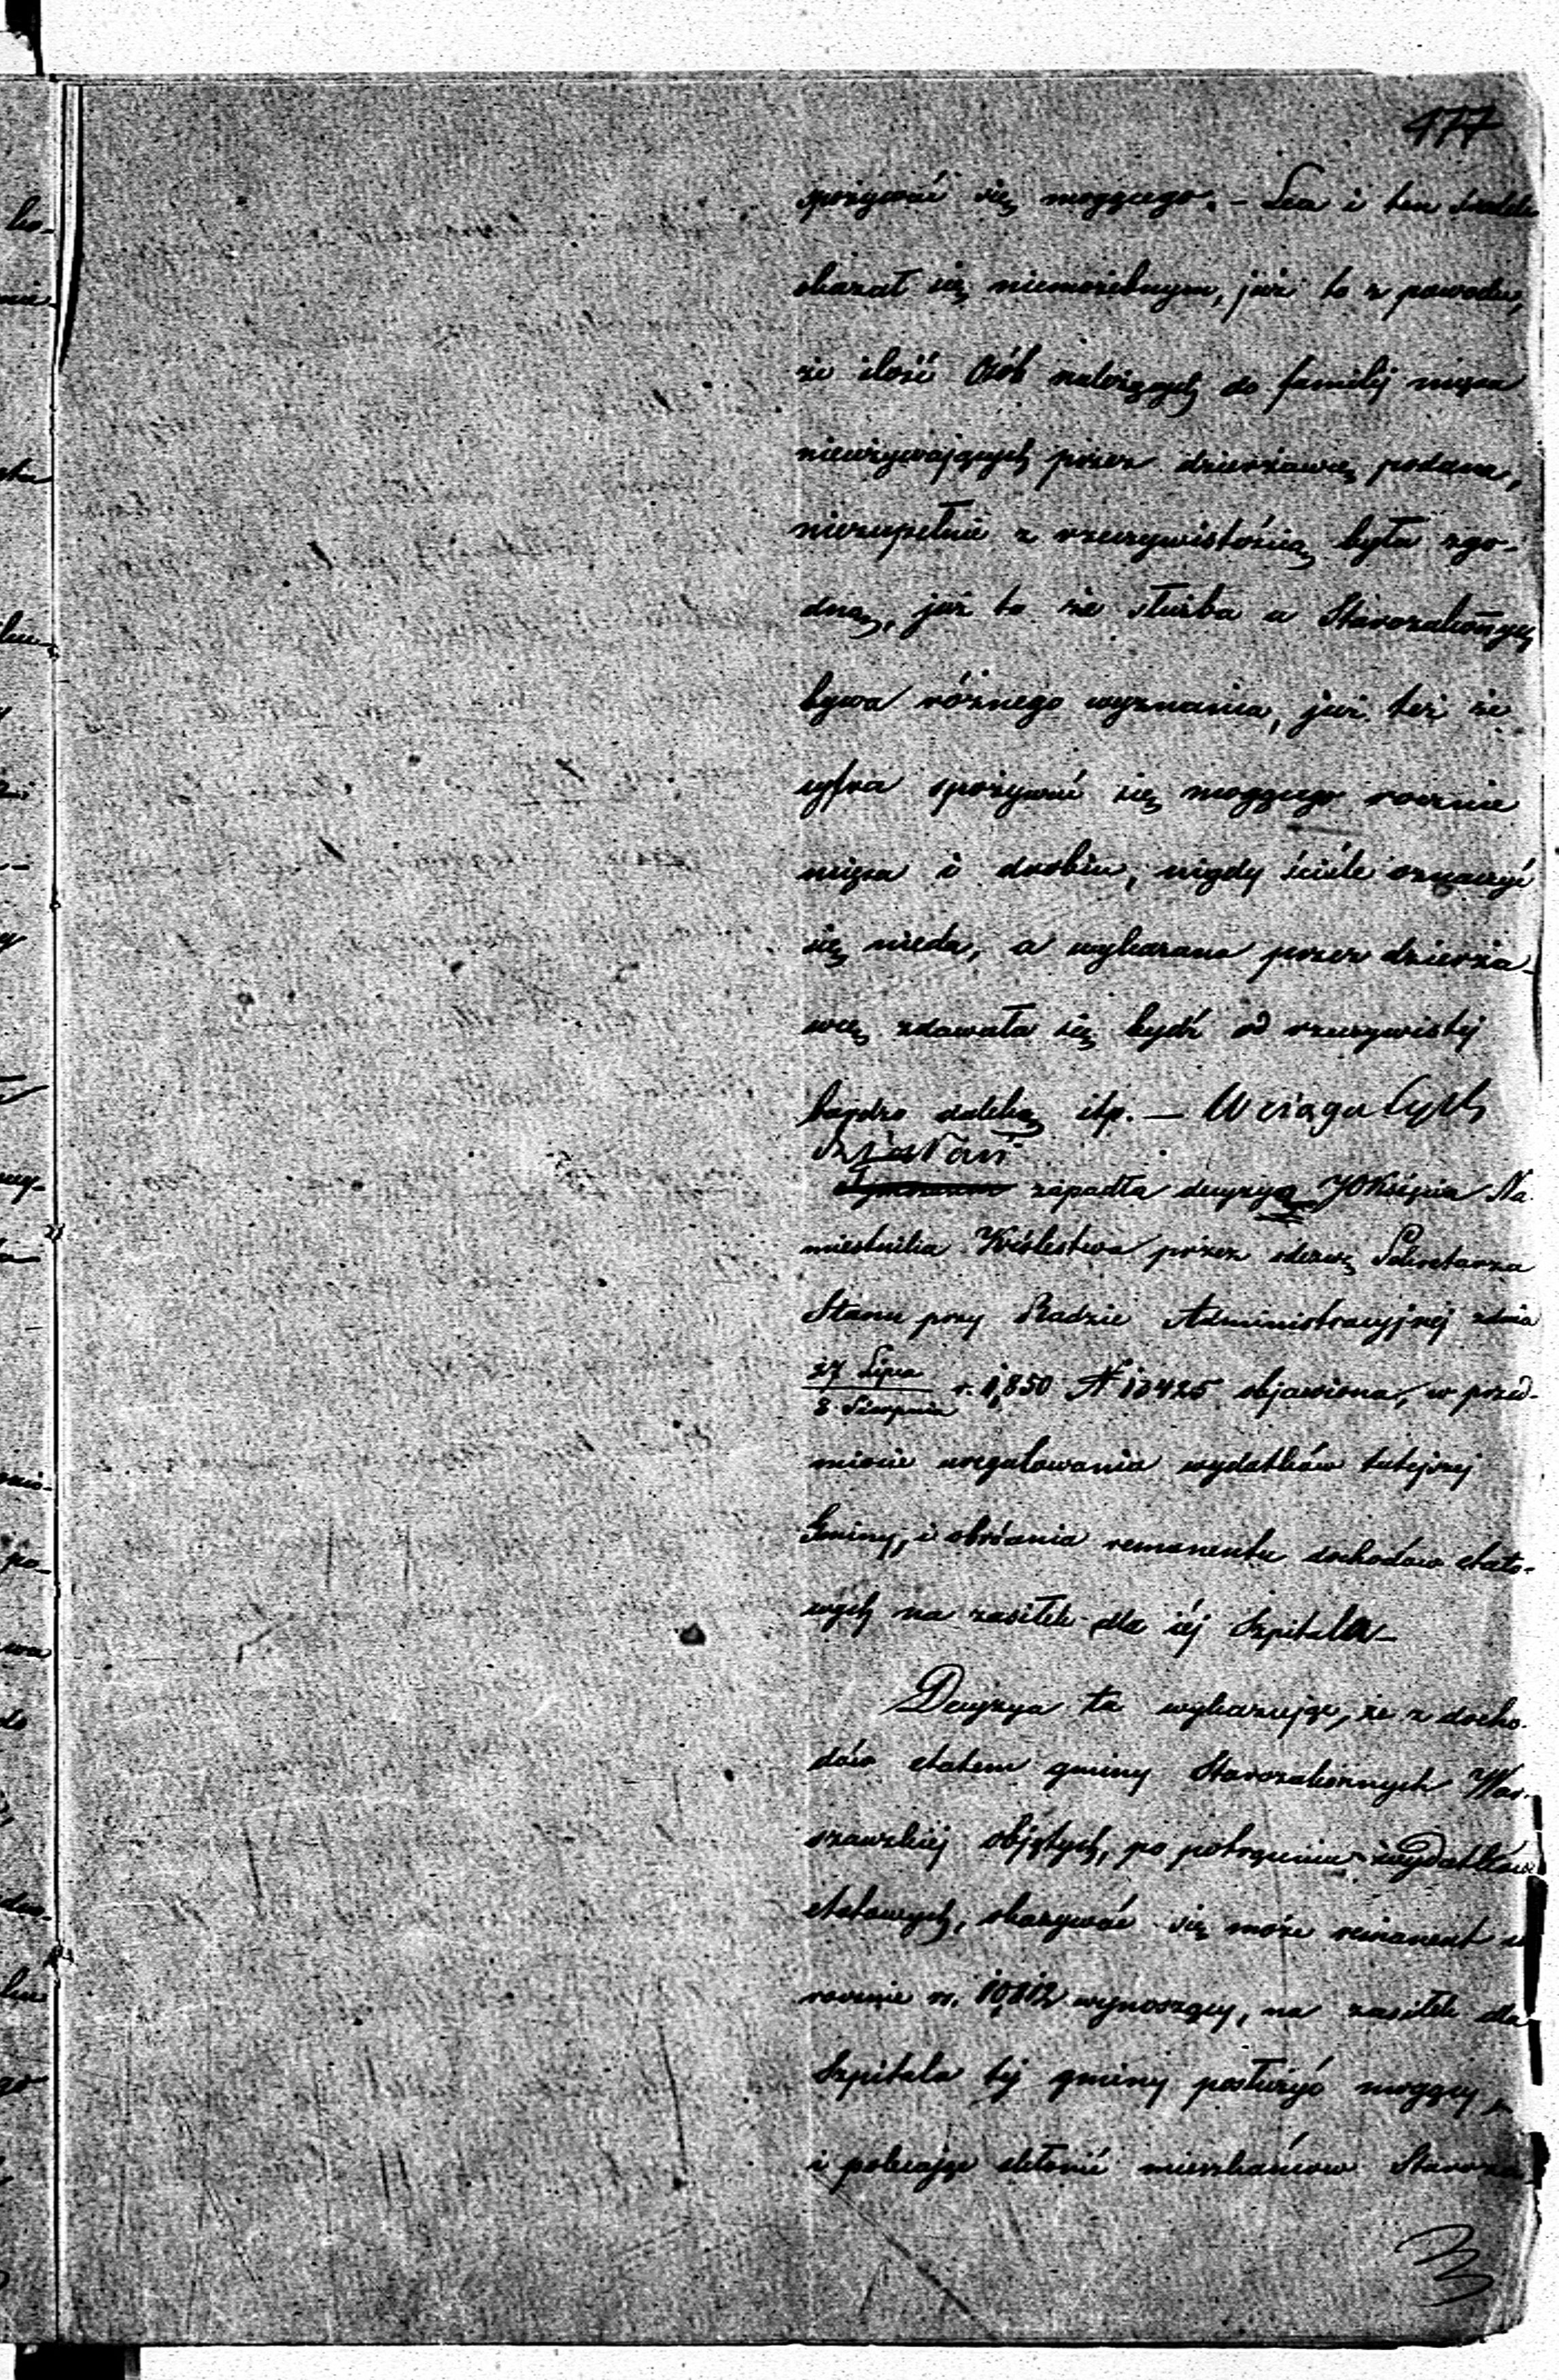 177
spożywać się mogącego. – Lecz i ten środek
okazał się niemożebnym, już to z powodu,
że ilość osób należących do familij mięsa
nieużywających przez dzierżawcę podana,
niezupełnie z rzeczywistością była zgo-
dną, już to że służba u Starozakonnych
bywa różnego wyznania, już też że
cyfra spożywać się mogącego rocznie
mięsa i drobiu, nigdy ściśle oznaczyć
się nieda, a wykazana przez dzierża-
wcę zdawała się bydź od rzeczywistej
bardzo daleką itp. — W ciągu tych
działań
zapadła decyzya JOKsięcia Na
miestnika Królestwa przez odezwę Sekretarza
Stanu przy Radzie Administracyjnej zdnia
27 Lipca
8 Sierpnia r. 1850 N 10425 objawiona, w przed-
miocie uregulowania wydatków tutejszej
Gminy, i obrócenia remanentu dochodów etato-
wych na zasiłek dla iéj Szpitala –
Decyzya ta wykazując, że z docho-
dów etatem gminy Starozakonnych War-
szawskiéj objętych, po potrąceniu wydatków
etatowych, okazywać się może remanent
rocznie rs. 10812 wynoszący, na zasiłek dla
Szpitala téj gminy posłużyć mogący
i polecając skłonić mieszkańców Staroza